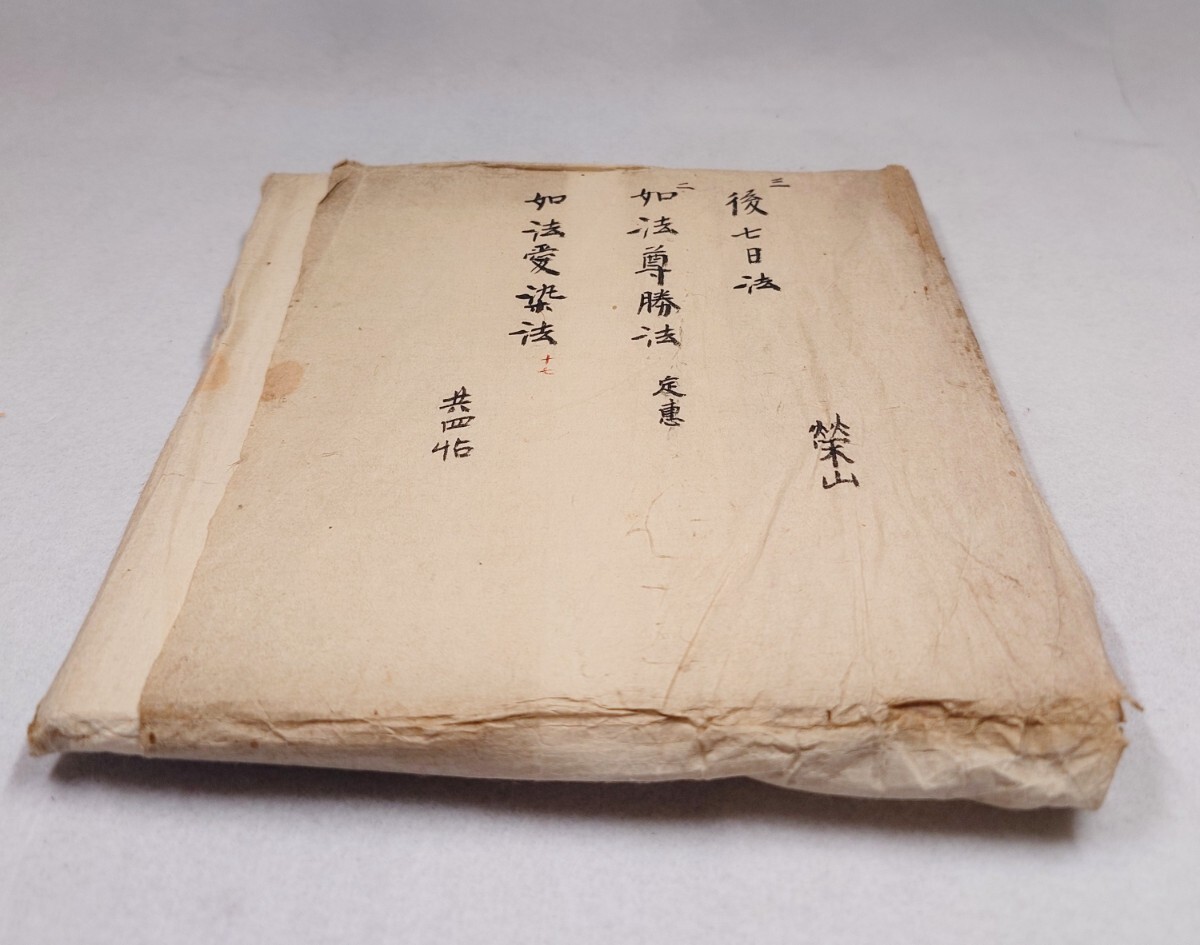 三
後七日法
榮山
二
如法尊勝法 定惠
如法愛染法 十七
共四帖